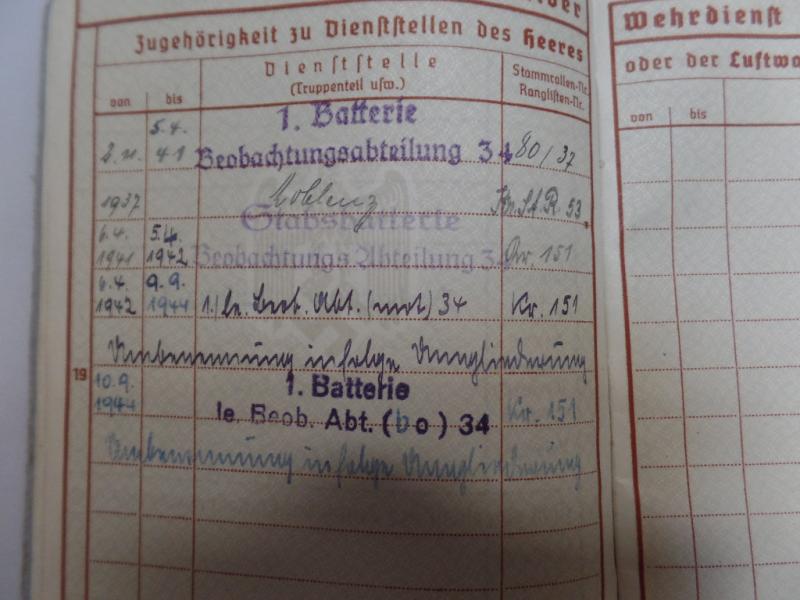 Zugehörigkeit zu Dienststellen des Heeres
Wehrdienst
oder der Luftwa
von
bis
Dienststelle
(Truppenteil usw.)
Stammrollen-Nr.
Ranglisten-Nr.
von
bis
5.4.
41
1. Batterie
Beobachtungsabteilung 34
80/37
1937
Koblenz
Kr.St.R. 53.
6.4.
1941
5.4.
1942
Stabsbatterie
Beobachtungs Abteilung 34
Kr. 151
6.4.
1942
9.9.
1944
1./le. Beob. Abt. (mot) 34
Kr. 151
Umbenennung infolge Umgliederung
19
10.9.
1944
1. Batterie
le. Beob. Abt. (bo) 34
Kr. 151
Umbenennung infolge Umgliederung